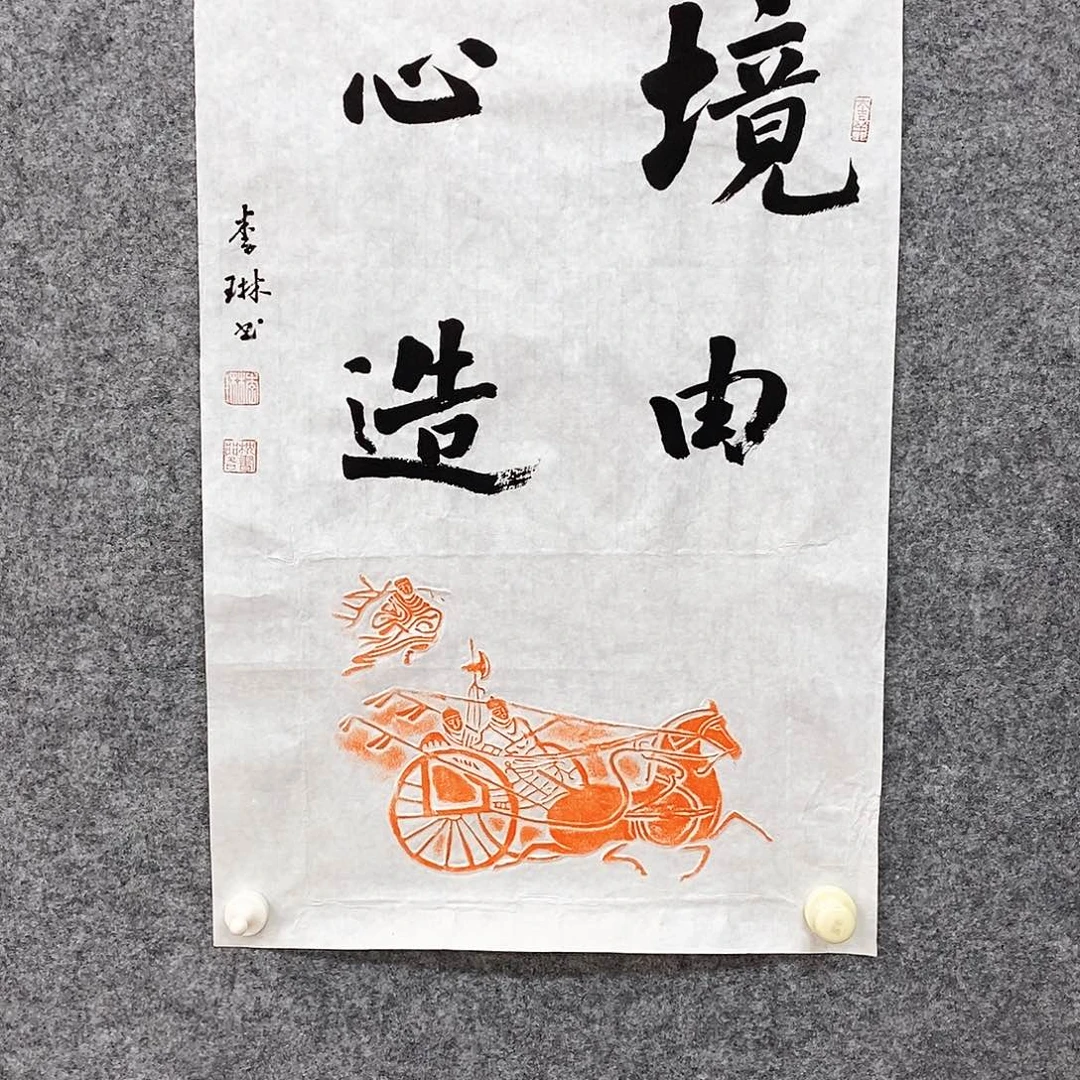 境由
心造
李琳书